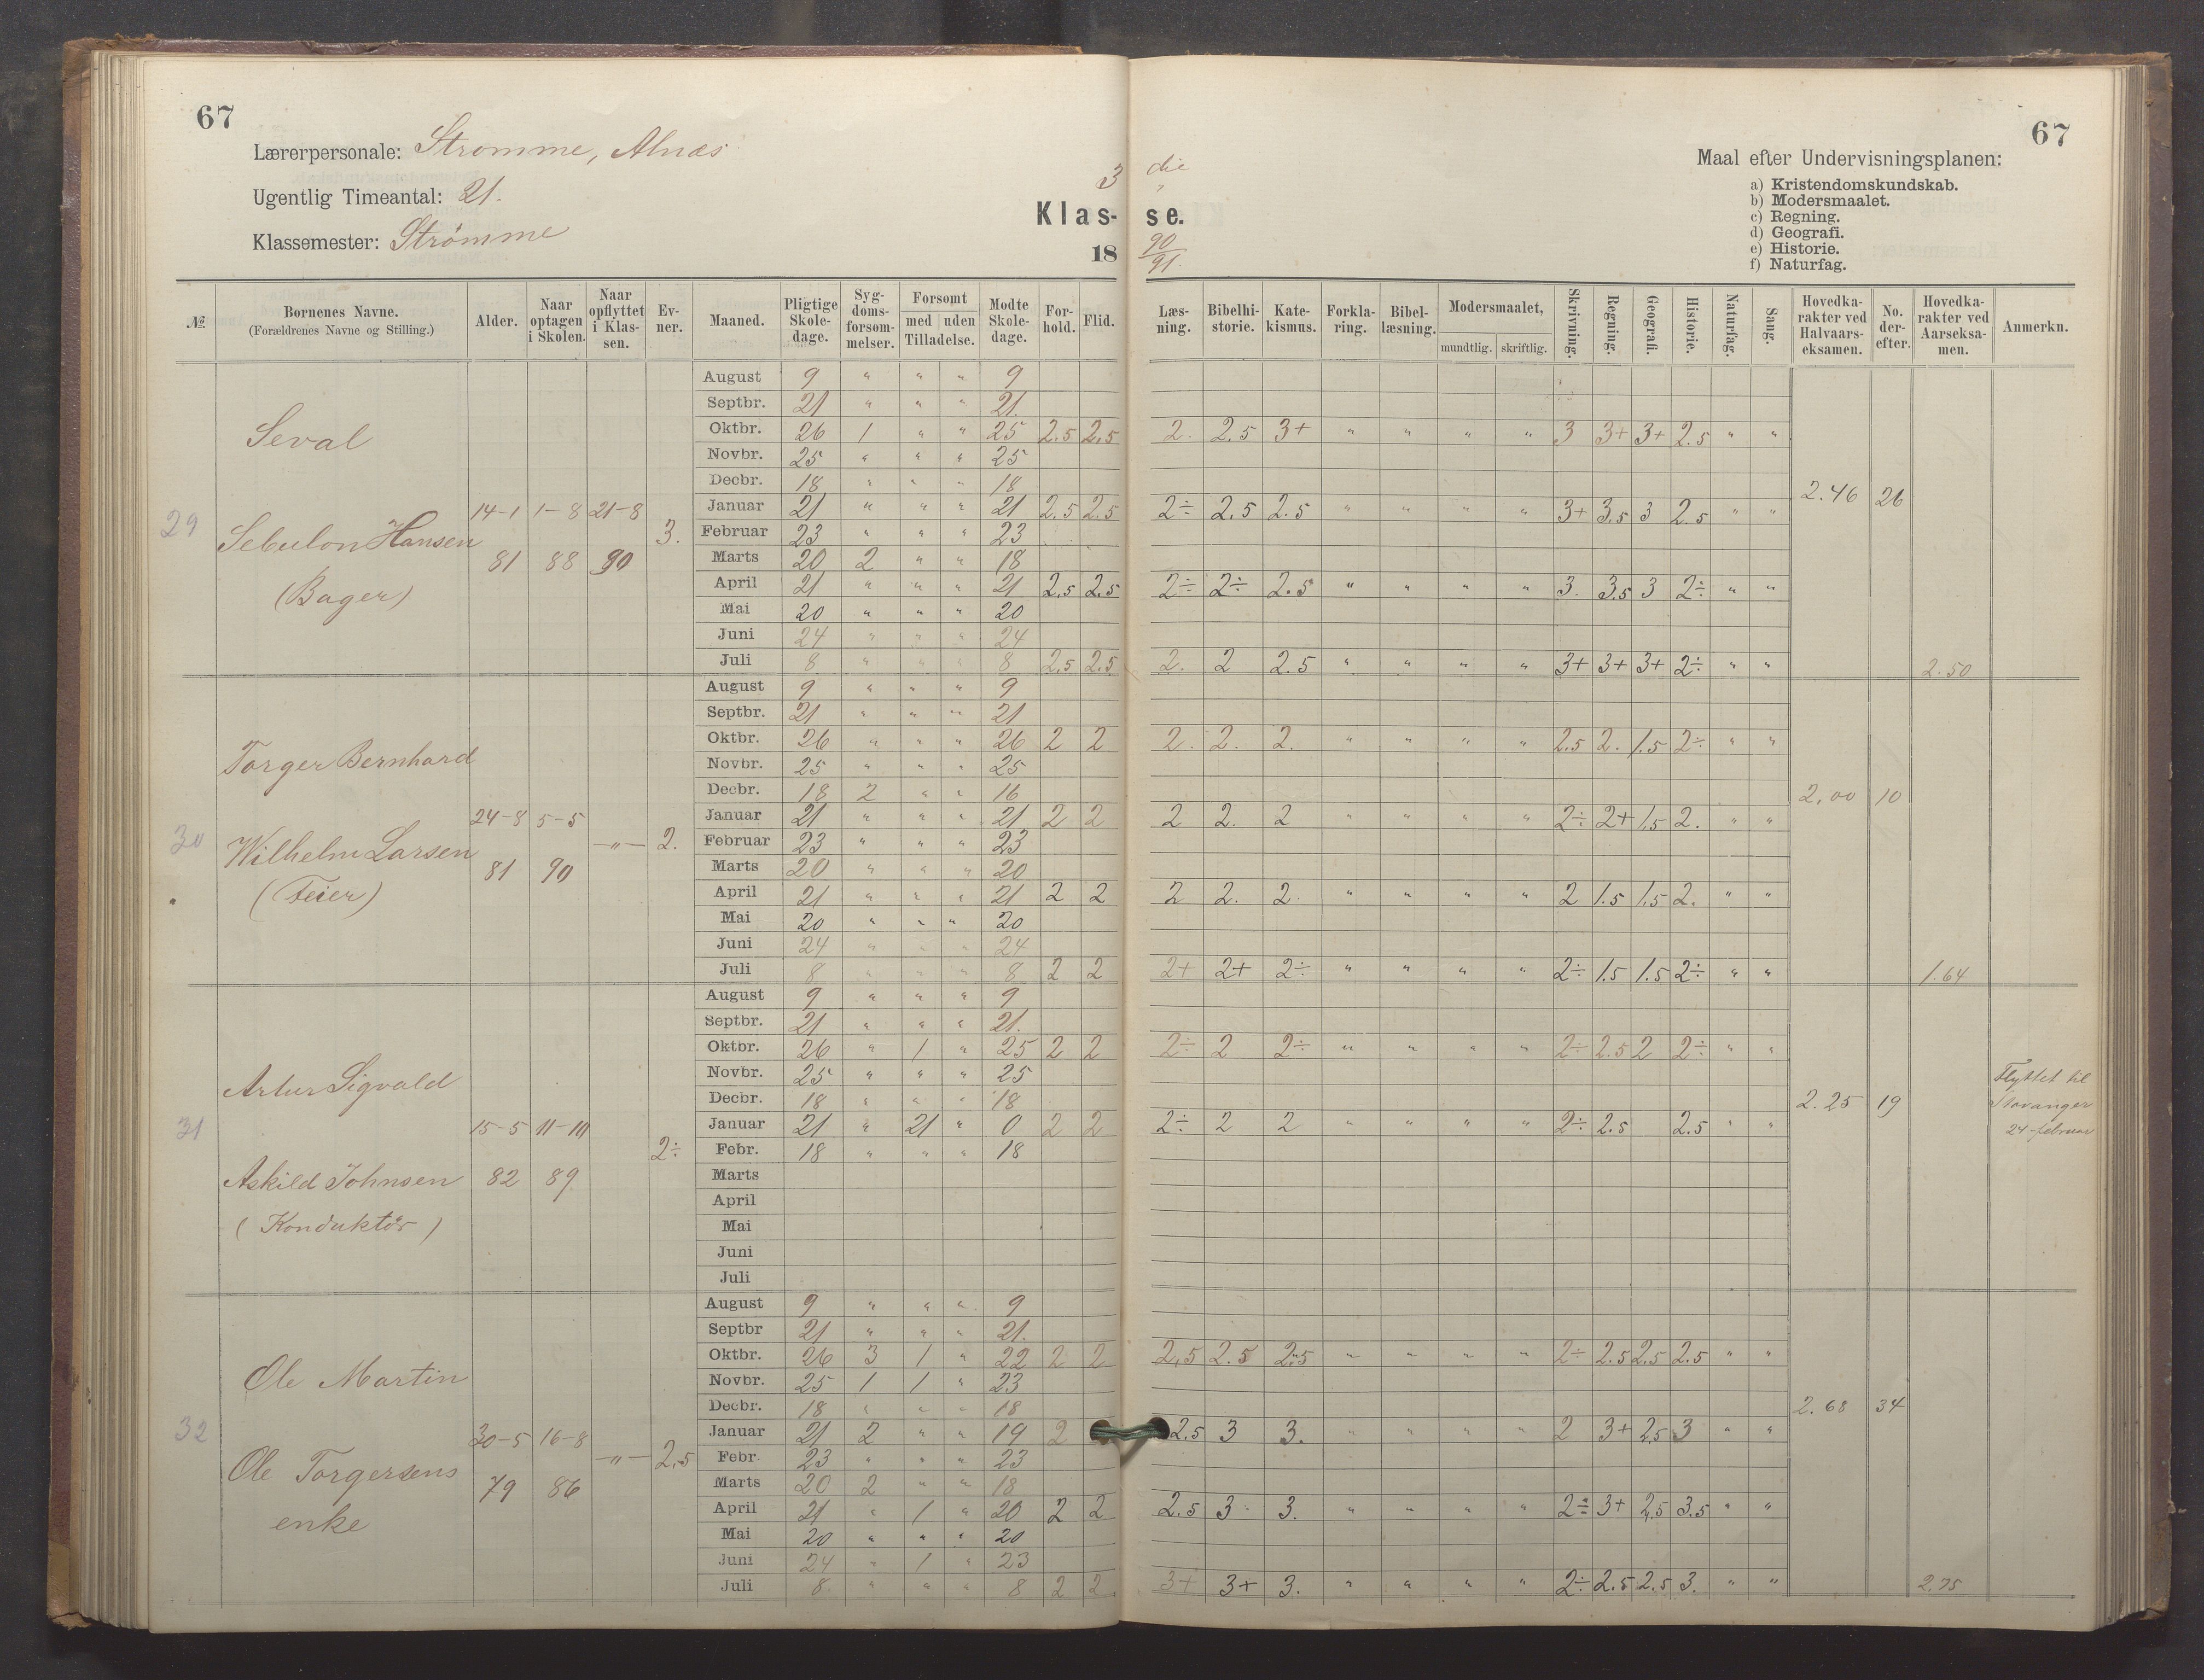 67
67
Lærerpersonale: Strømme, Alnæs
Ugentlig Timeantal: 21.
Klassemester: Strømme
3 die
Klas- se.
18 90/91.
Maal efter Undervisningsplanen:
a) Kristendomskundskab.
b) Modersmaalet.
c) Regning.
d) Geografi.
e) Historie.
f) Naturfag.
№ | Børnenes Navne. (Forældrenes Navne og Stilling.) | Alder. | Naar optagen i Skolen. | Naar opflyttet i Klas-sen. | Ev-ner. | Maaned. | Pligtige Skole-dage. | Syg-doms-forsøm-melser. | Forsømt med uden Tilladelse. | Mødte Skole-dage. | For-hold. | Flid. | Læs-ning. | Bibelhi-storie. | Kate-kismus. | Forkla-ring. | Bibel-læsning. | Modersmaalet, mundtlig. skriftlig. | Skrivning. | Regning. | Geografi. | Historie. | Naturfag. | Sang. | Hovedka-rakter ved Halvaars-eksamen. | No. der-efter. | Hovedka-rakter ved Aarseksa-men. | Anmerkn.
29
Seval
Sebulon Hansen
(Bager)
14-1 81
1-8 88
21-8 90
3.
August 9 " " " 9
Septbr. 21 " " " 21.
Oktbr. 26 1 " " 25 2.5 2.5 2. 2.5 3+ " " " " 3 3+ 3+ 2.5 " "
Novbr. 25 " " " 25
Decbr. 18 " " " 18
Januar 21 " " " 21 2.5 2.5 2÷ 2.5 2.5 " " " " 3+ 3.5 3 2.5 " "
2.46 26
Februar 23 " " " 23
Marts 20 2 " " 18
April 21 " " " 21 2.5 2.5 2÷ 2÷ 2.5 " " " " 3. 3.5 3 2÷ " "
Mai 20 " " " 20
Juni 24 " " " 24
Juli 8 " " " 8 2.5 2.5 2. 2 2.5 " " " " 3+ 3+ 3+ 2÷ " " 2.50
30
Torger Bernhard
Wilhelm Larsen
(Feier)
24-8 81
5-5 90
-"-
2.
August 9 " " " 9
Septbr. 21 " " " 21
Oktbr. 26 " " " 26 2 2 2. 2. 2. " " " " 2.5 2. 1.5 2÷ " "
Novbr. 25 " " " 25
Decbr. 18 2 " " 16
2.00 10
Januar 21 " " " 21 2 2 2 2. 2 " " " " 2÷ 2+ 1.5 2. " "
Februar 23 " " " 23
Marts 20 " " " 20
April 21 " " " 21 2 2 2 2. 2. " " " " 2 1.5 1.5 2. " "
Mai 20 " " " 20
Juni 24 " " " 24
Juli 8 " " " 8 2 2 2+ 2+ 2÷ " " " " 2÷ 1.5 1.5 2÷ " " 1.64
31
Artur Sigvald
Askild Johnsen
(Konduktør)
15-5 82
11-10 89
2÷
August 9 " " " 9
Septbr. 21 " " " 21.
Oktbr. 26 " 1 " 25 2 2 2÷ 2 2÷ " " " " 2÷ 2.5 2 2÷ " "
Novbr. 25 " " " 25
Decbr. 18 " " " 18
2.25 19
Flyttet til
Stavanger
24-februar
Januar 21 " 21 " 0 2 2 2÷ 2 2 " " " " 2÷ 2.5 2.5 " "
Febr. 18 " " " 18
Marts
April
Mai
Juni
Juli
32
Ole Martin
Ole Torgersens
enke
30-5 79
16-8 86
-"-
2,5
August 9 " " " 9
Septbr 21 " " " 21.
Oktbr. 26 3 1 " 22 2 2 2,5 2.5 2.5 " " " " 2÷ 2.5 2.5 2.5 " "
Novbr. 25 1 1 " 23
Decbr. 18 " " " 18
2.68 34
Januar 21 2 " " 19 2 2.5 3 3. " " " " 2 3+ 2,5 3 " "
Febr. 23 " " " 23
Marts 20 2 " " 18
April 21 " 1 " 20 2 2 2.5 3 3. " " " " 2÷ 3+ 2,5 3.5 " "
Mai 20 " " " 20
Juni 24 " 1 " 23
Juli 8 " " " 8 2 2 3+ 3+ 3. " " " " 2÷ 2.5 2.5 3. " " 2.75